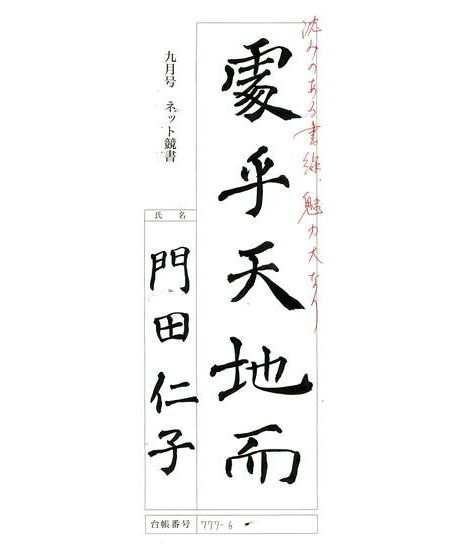 沈みのある書線、魅力大なり
處乎天地而
九月号 ネット競書
氏名
門田仁子
台帳番号 777-6